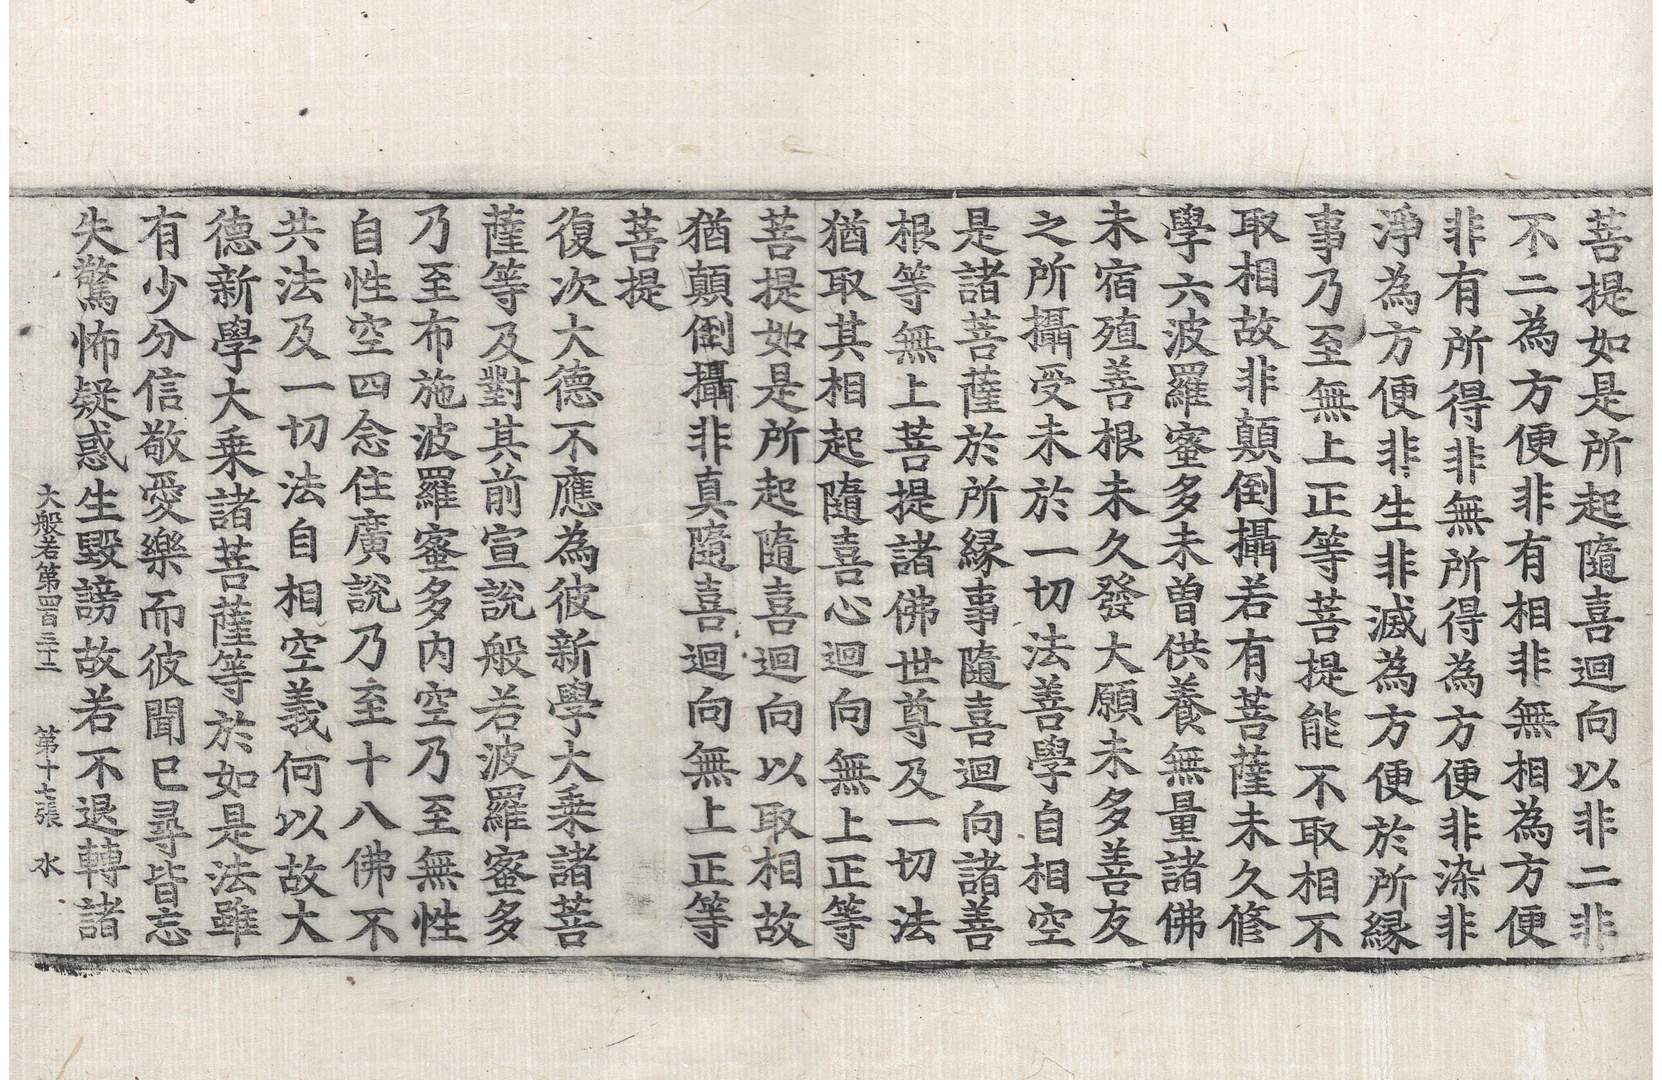 菩提如是所起隨喜迴向以非二非
不二為方便非有相非無相為方便
非有所得非無所得為方便非染非
淨為方便非生非滅為方便於所緣
事乃至無上正等菩提能不取相不
取相故非顛倒攝若有菩薩未久修
學六波羅蜜多未曾供養無量諸佛
未宿殖善根未久發大願未多善友
之所攝受未於一切法善學自相空
是諸菩薩於所緣事隨喜迴向諸善
根等無上菩提諸佛世尊及一切法
猶取其相起隨喜心迴向無上正等
菩提如是所起隨喜迴向以取相故
猶顛倒攝非真隨喜迴向無上正等
菩提
復次大德不應為彼新學大乘諸菩
薩等及對其前宣說般若波羅蜜多
乃至布施波羅蜜多內空乃至無性
自性空四念住廣說乃至十八佛不
共法及一切法自相空義何以故大
德新學大乘諸菩薩等於如是法雖
有少分信敬愛樂而彼聞已尋皆忘
失驚怖疑惑生毀謗故若不退轉諸
大般若第四百三十二 第十七張 水